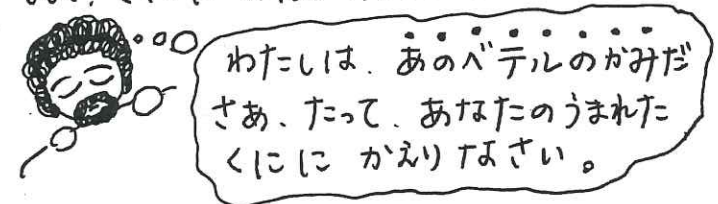 わたしは、あのベテルのかみだ
さあ、たって、あなたのうまれた
くにに かえりなさい。